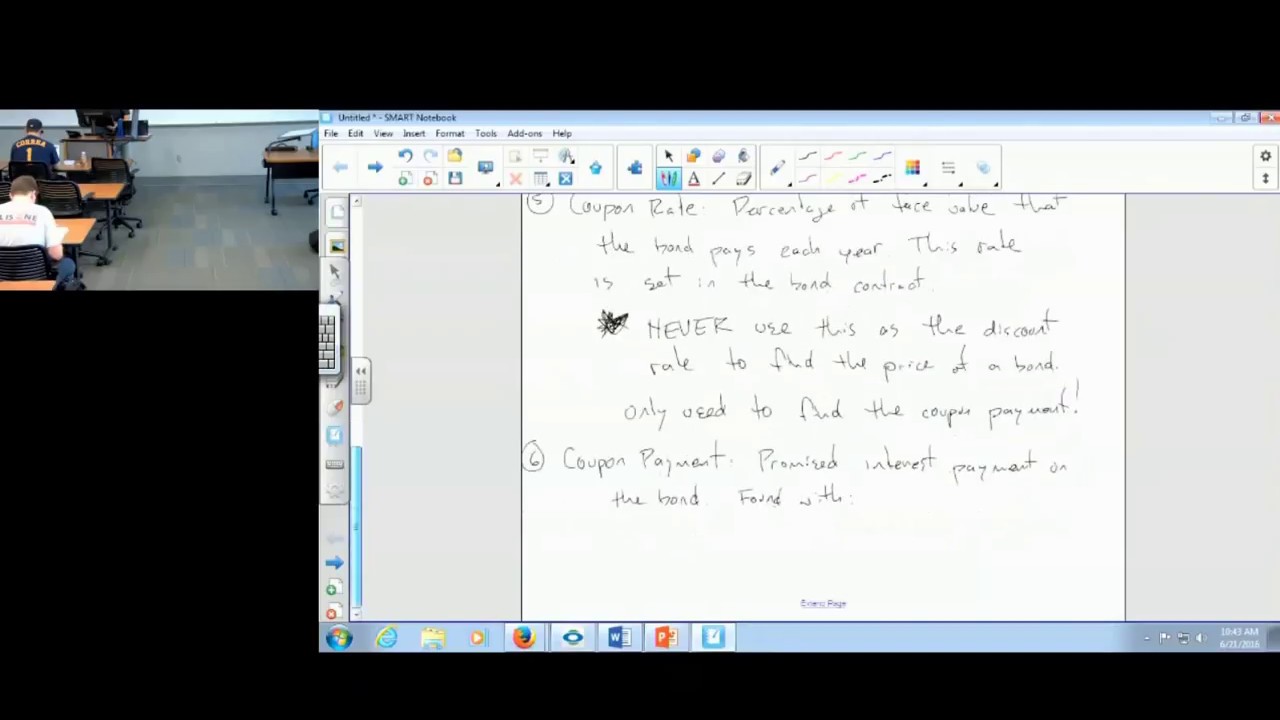 Untitled * - SMART Notebook
File Edit View Insert Format Tools Add-ons Help
CORREA
1
⑤ Coupon Rate. Percentage of face value that
the bond pays each year This rate
is set in the bond contract.
NEVER use this as the discount
rate to find the price of a bond.
only used to find the coupon payment!
⑥ Coupon Payment. Promised interest payment on
the bond. Found with:
Extend Page
10:43 AM
6/21/2016